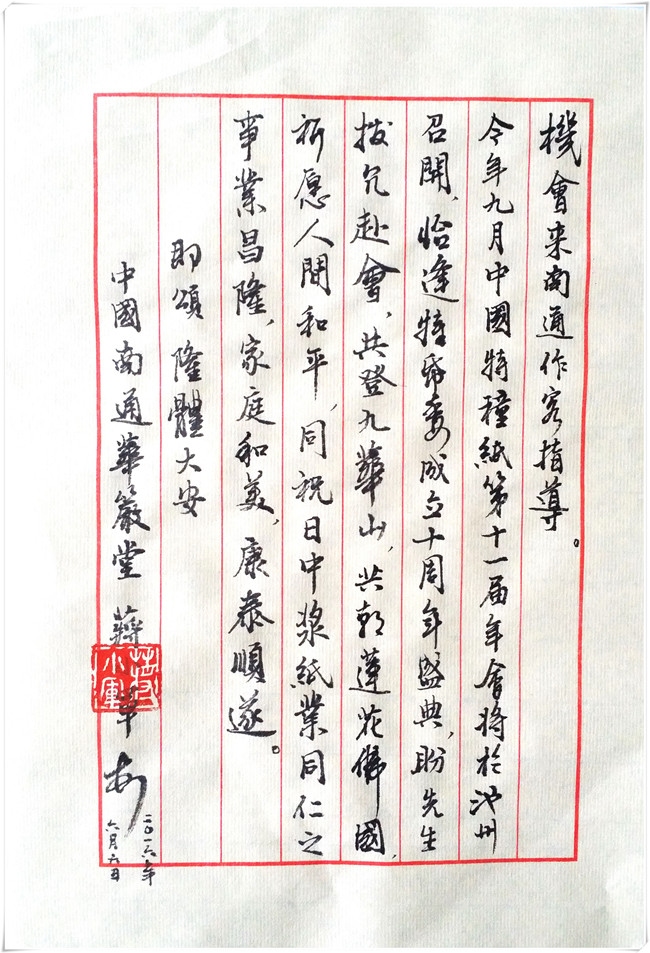 機會来南通作客指導。
今年九月中國特種紙第十一届年會将於池州
召開，恰逢特紙委成立十周年盛典，盼先生
拨冗赴會，共登九華山，共朝蓮花佛國，
祈愿人間和平，同祝日中漿紙業同仁之
事業昌隆，家庭和美，康泰順遂。
即頌 隆體大安
中國南通華嚴堂 蔣
二〇一六年
六月六日